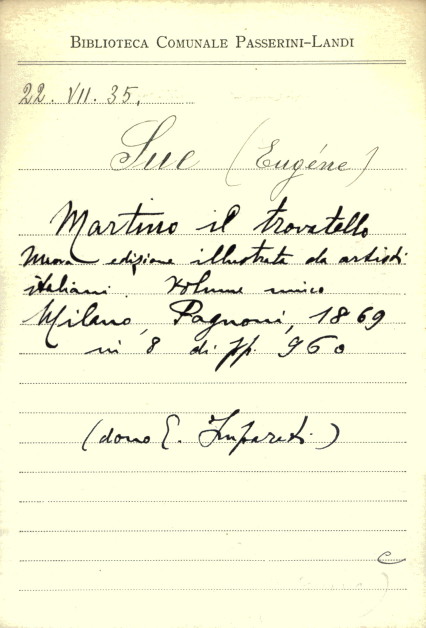 BIBLIOTECA COMUNALE PASSERINI-LANDI
22. VII. 35.
Sue (Eugéne)
Martino il trovatello
Nuova edizione illustrata da artisti
italiani. Volume unico
Milano, Pagnoni, 1869
in 8 di pp. 960
(dono E. Imparati)
C